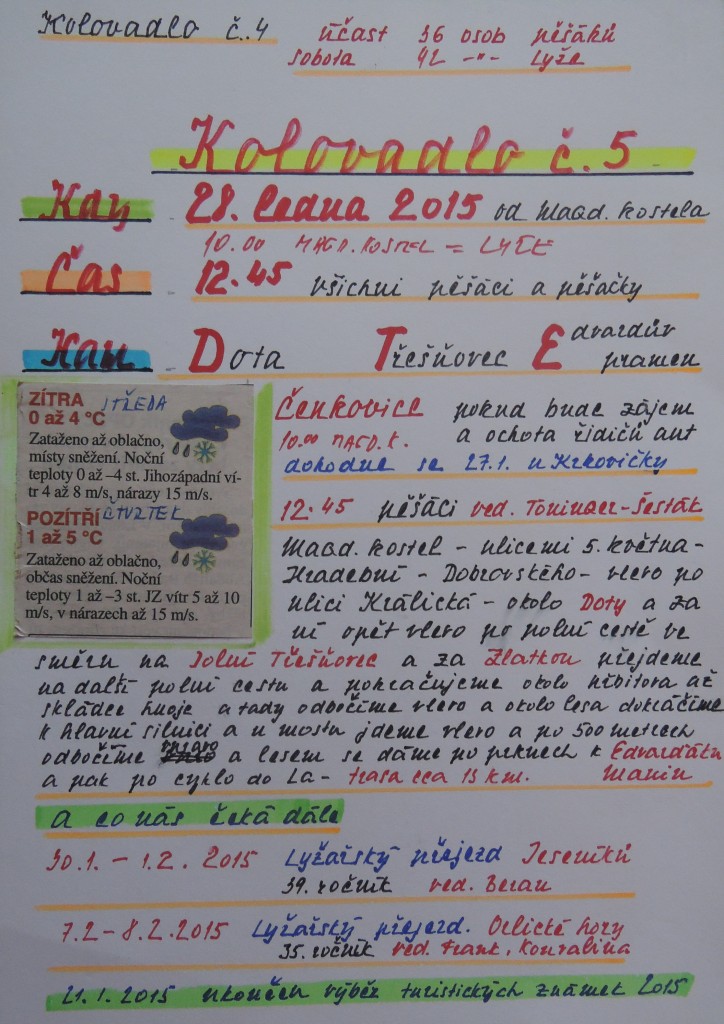 Kolovadlo č. 4
účast 36 osob pěšáků
sobota 42 -"- Lyže
Kolovadlo č. 5
Kdy 28. ledna 2015 od Magd. kostela
10.00 MAGD. KOSTEL = LYŽE
Čas 12.45 všichni pěšáci a pěšačky
Kam Dota Třešňovec Edvardův pramen
ZÍTRA STŘEDA
0 až 4 °C
Zataženo až oblačno,
místy sněžení. Noční
teploty 0 až –4 st. Jihozápadní ví-
tr 4 až 8 m/s, nárazy 15 m/s.
POZÍTŘÍ ČTVRTEK
1 až 5 °C
Zataženo až oblačno,
občas sněžení. Noční
teploty 1 až –3 st. JZ vítr 5 až 10
m/s, v nárazech až 15 m/s.
Čenkovice pokud bude zájem
10.00 MAGD. K. a ochota řidičů aut
dohodne se 27.1. u Krkovičky
12.45 pěšáci ved. Toninger-Šesták
Magd. kostel - ulicemi 5. května -
Hradební - Dobrovského - vlevo po
ulici Králická - okolo Doty a za
ní opět vlevo po polní cestě ve
směru na Dolní Třešňovec a za Zlatkou přejdeme
na další polní cestu a pokračujeme okolo až
skládce hnoje a tady odbočíme vlevo a okolo lesa dokráčíme
k hlavní silnici a u mostu jdeme vlevo a po 500 metrech
odbočíme vpravo a lesem se dáme po prknech k Edvarďáku
a pak po cyklo do La- trasa cca 13 km. Manin
a co nás čeká dále
30.1. - 1.2. 2015 Lyžařský přejezd Jeseníků
39. ročník ved. Beran
7.2 - 8.2.2015 Lyžařský přejezd. Orlické hory
35. ročník ved. Frank, Konvalina
21.1.2015 ukončen výběr turistických známek 2015